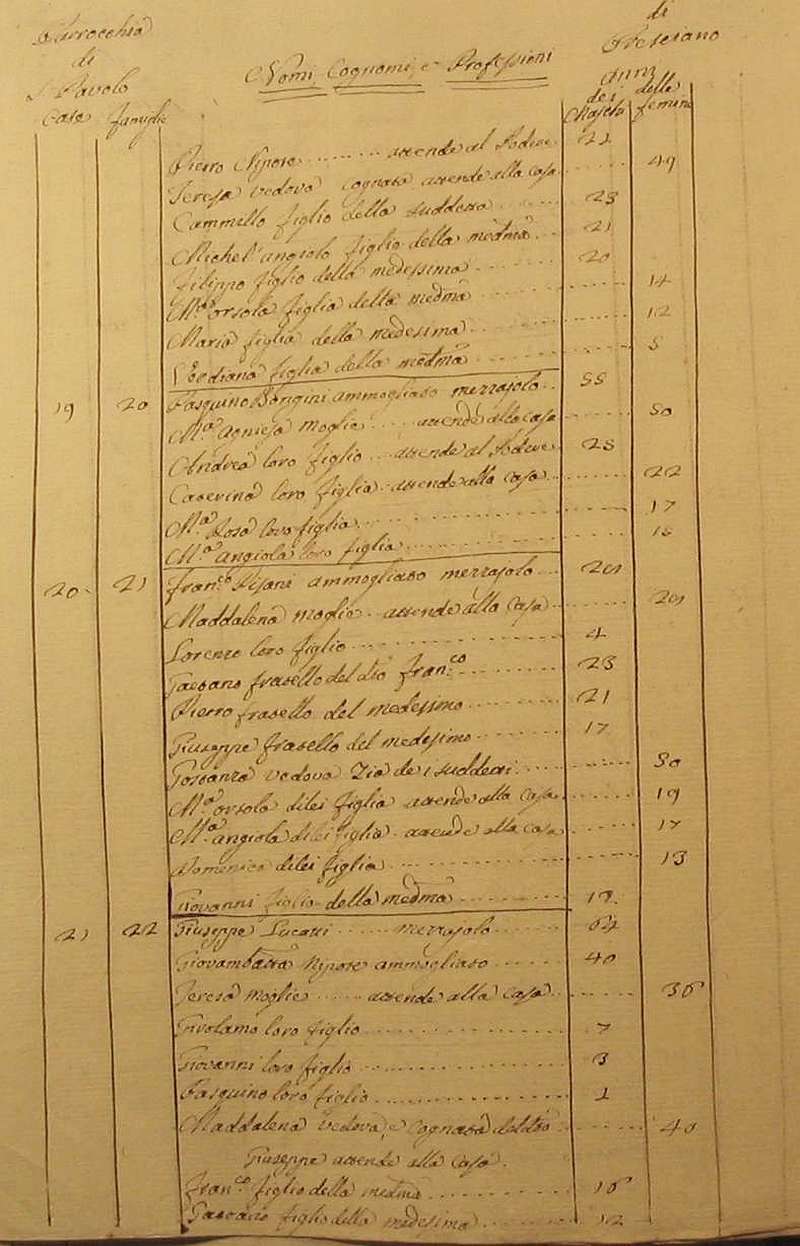 Parrocchia
di
S. Pavolo
di
Presciano
Nomi, Cognomi, e Professioni
Anni
Case famiglie dei Maschi delle femine
Pietro Nipote ........ attende al Podere 22
Teresa vedova cognata attende alla casa ..... 49
Cammillo figlio della suddetta ....... 23
Michel'angiolo figlio della medma ... 21
Filippo figlio della medesima ........ 20
Ma. orsola figlia della medma ........ 14
Maria figlia della medesima ........ 12
Verdiana figlia della medma ........ 5
19 20 Pasquino Bongini ammogliato mezzajolo .. 55
Ma. Agniesa Moglie .... attende alla casa ..... 50
Andrea loro figlio ... attende al Podere .. 25
Caterina loro figlia .. attende alla casa ..... 22
Ma. Rosa loro figlia ........ 17
Ma. angiola loro figlia ........
20 21 Fran.co Pisani ammogliato mezzajolo ...
Maddalena moglie .. attende alla casa .....
Lorenzo loro figlio ........ 4
Gaetano fratello del dto Fran.co ..... 23
Pietro fratello del medesimo ........ 21
Giuseppe fratello del medesimo ........ 17
Gostanza vedova Zia de i suddetti ........ 50
Ma. orsola di lei figlia attende alla casa ..... 19
Ma. angiola di lei figlia attende alla casa ..... 17
Domenica di lei figlia ........ 13
Giovanni figlio della medma ........
21 22 Giuseppe Lucatti ...... mezzajolo ..... 64
Giovambatta Nipote ammogliato ...... 40
Teresa moglie ...... attende alla casa ..... 36
Girolamo loro figlio ........ 7
Giovanni loro figlio ........ 3
Pasquino loro figlio ........ 1
Maddalena vedova, e cognata del dto ..... 40
Giuseppe attende alla casa.
Fran.co figlio della medma ........ 16
Gaetano figlio della medesima ........ 12